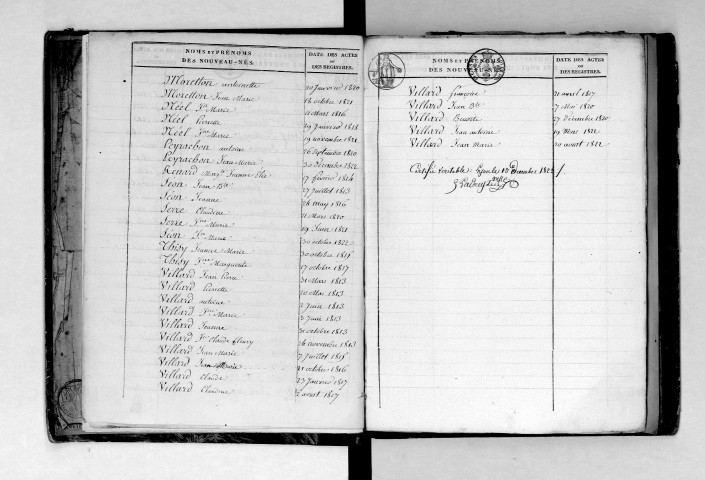 NOMS ET PRÉNOMS DES NOUVEAU-NÉS.
DATE DES ACTES OU DES REGISTRES.
Moretton antoinette 20 Janvier 1820
Moretton Jean Marie 18 octobre 1821
Néel Marie 11 Mars 1816
Néel Pierrette 29 Janvier 1818
Néel Marie 19 novembre 1821
Peyrachon antoine 26 Septembre 1820
Peyrachon Jean Marie 30 Décembre 1822
Renard Jeanne 17 février 1814
Jean Bte 27 Juillet 1813
Jeanne 26 may 1816
Serre Claudine 21 Mars 1820
Serre Marie 29 Juin 1821
Marie 30 octobre 1822
Thisy Jeanne Marie 30 octobre
Thisy Marguerite 17 octobre 1817
Villard Jean Pierre 31 Mars 1813
Villard Pierrette 20 Mai 1813
Villard antoine 2 Juin 1813
Villard Marie 3 Juin 1813
Villard Jeanne 31 octobre 1813
Villard Claude fleury 26 novembre 1813
Villard Jean Marie 7 Juillet
Villard Jean Marie 21 octobre 1816
Villard Claude 23 Janvier 1817
Villard Claudine 2 avril 1817
NOMS ET PRÉNOMS DES NOUVEAU-NÉS.
DATE DES ACTES OU DES REGISTRES.
Villard françoise 21 avril 1817
Villard Jean Bte 7 Mai 1820
Villard Benoite 27 décembre 1820
Villard Jean antoine 19 Mars 1822
Villard Jean Marie 20 avril 1822
Certifié véritable 1822